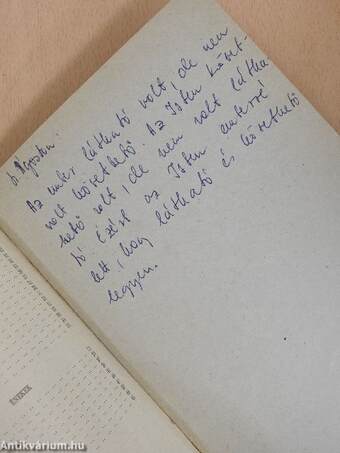 b. Ágoston:
Az ember látható volt, de nem
volt követhető. Az Isten követ-
hető volt, de nem volt látha
tó ezért az Isten emberré
lett, hogy látható és követhető
legyen.
ÉNEKEK
Antikvárium.hu